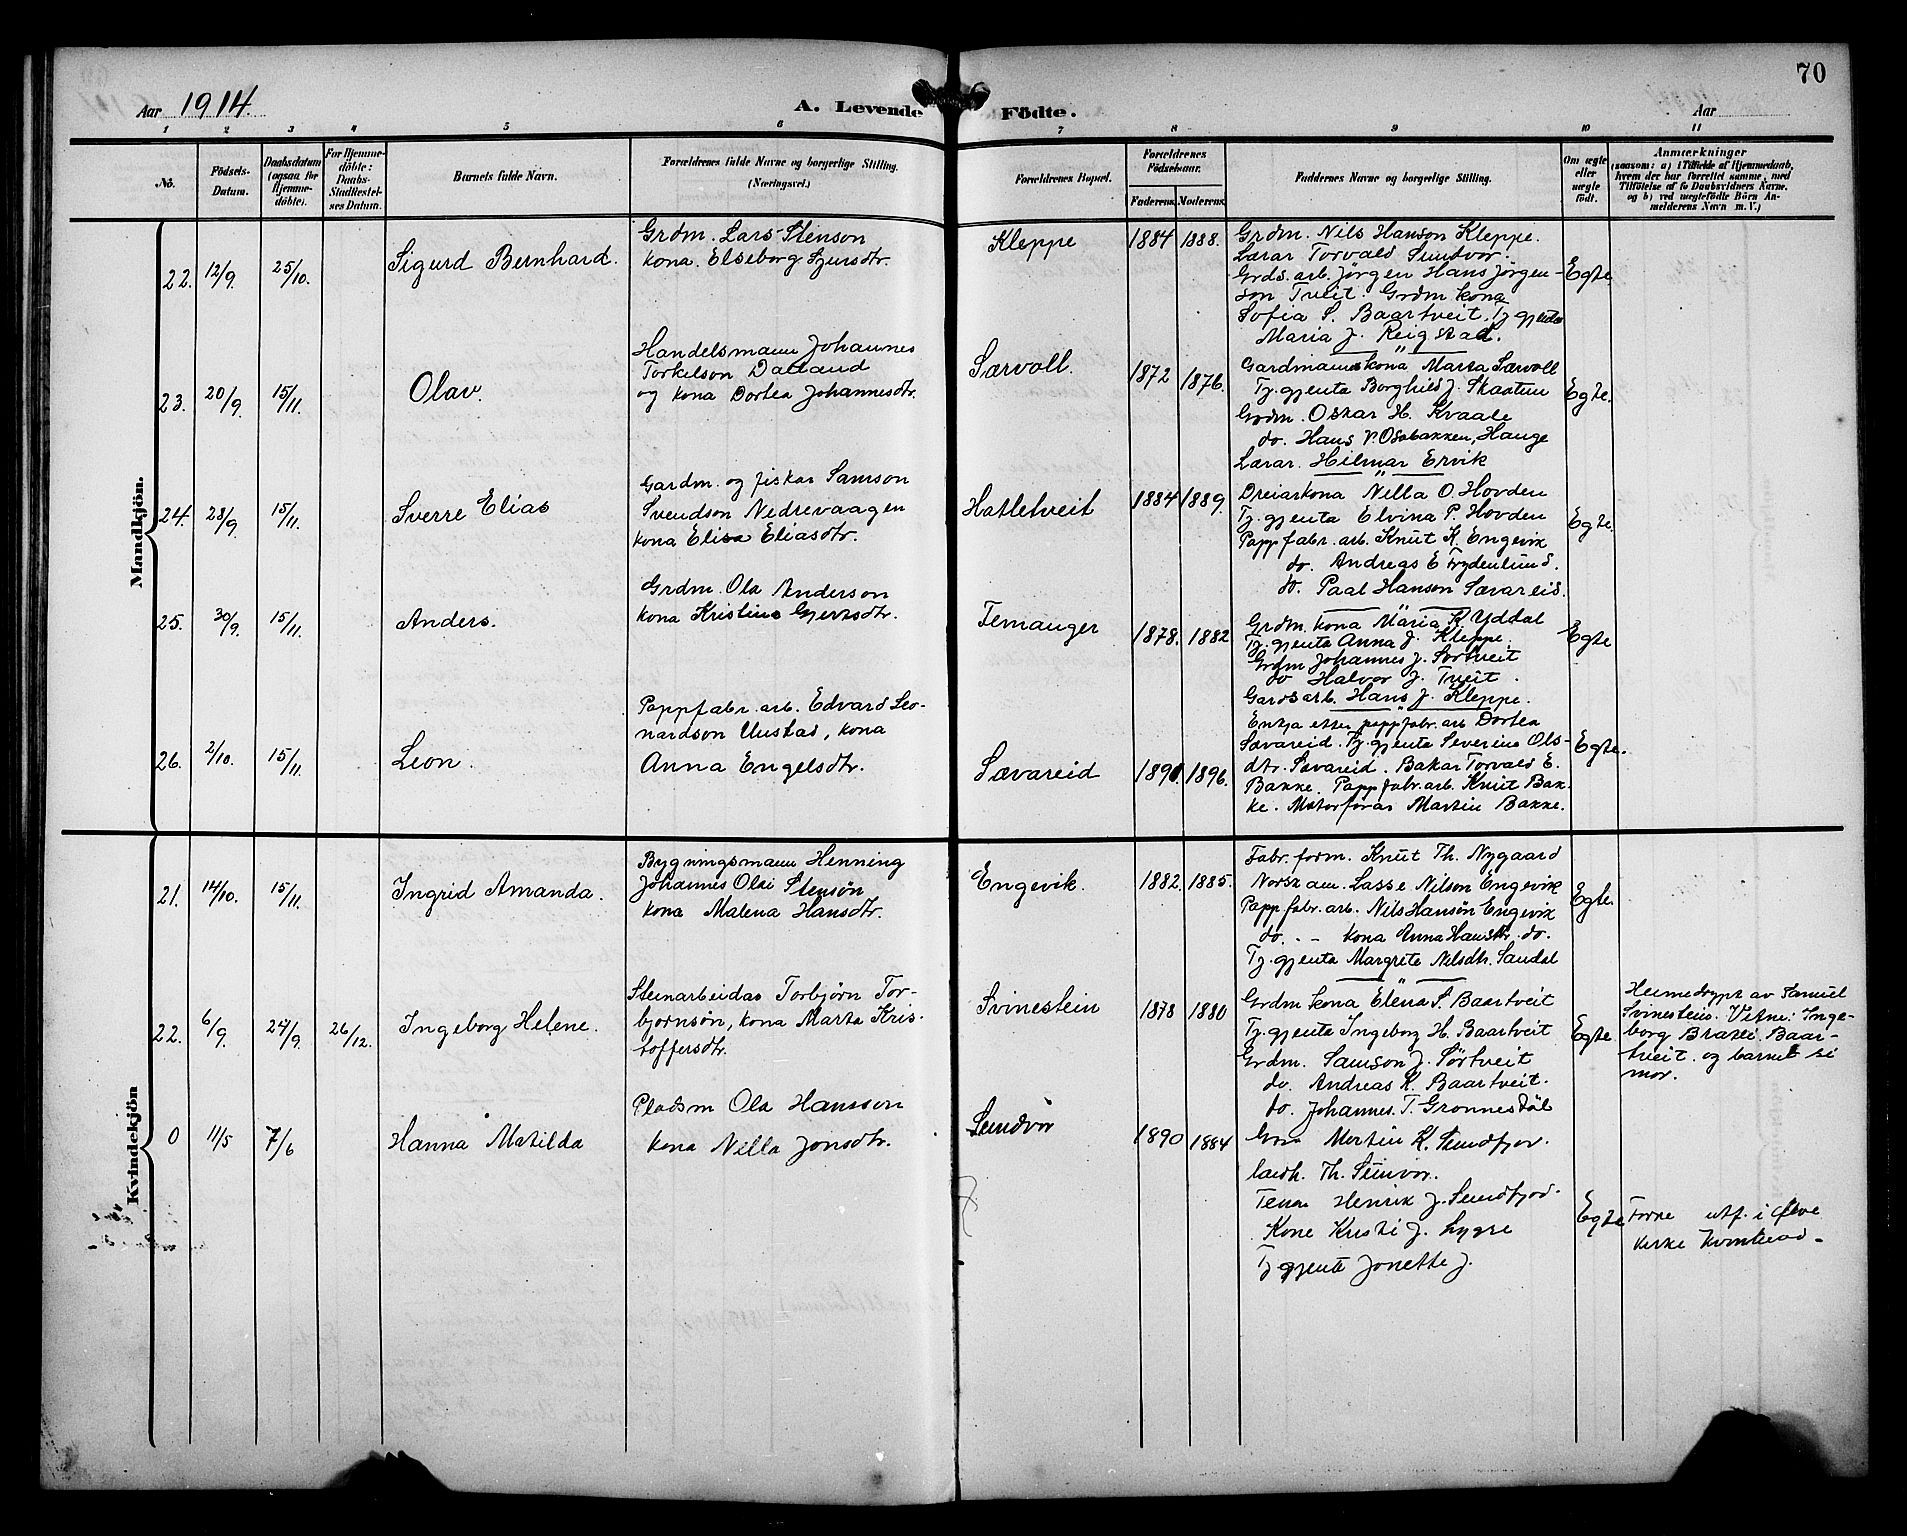 70
Aar 1914.
A. Levende Födte.
Aar
1 2 3 4 5 6 7 8 9 10 11
No.
Födsels-
Datum.
Daabsdatum
(ogsaa for
Hjemme-
döbte).
For Hjemme-
döbte:
Daabs-
Stadfæstel-
ses Datum.
Barnets fulde Navn.
Forældrenes fulde Navne og borgerlige Stilling.
(Næringsvei.)
Forældrenes Bopæl.
Forældrenes
Födselsaar.
Faderens. Moderens.
Faddernes Navne og borgerlige Stilling.
Om ægte
eller
uægte
födt.
Anmærkninger
(saasom: a) i Tilfælde af Hjemmedaab,
hvem der har forrettet samme, med
Tilföielse af to Daabsvidners Navne,
og b) ved uægtefödte Börn An-
melderens Navn m. V.)
Mandkjön.
22. 12/9. 25/10. Sigurd Bernhard.
Grdm. Lars Stenson
kona. Elseborg Sjursdtr.
Kleppe 1884 1888.
Grdm. Nils Hanson Kleppe.
Lærar Torvald Sundvor.
Grds. arb. Jörgen Hans Jörgen-
son Tveit. Grdm kona
Sofia S. Baartveit. Tj gjenta
Maria J. Reigstad.
Egte.
23. 20/9. 15/11. Olav.
Handelsmann Johannes
Torkelson Dalland
og kona Dortea Johannesdtr.
Særvoll. 1872 1876.
Gardmannskona Marta Særvoll
Tj. gjenta Borghild J. Skaatun
Grdm. Oskar H. Kvaale
do. Hans P. Osabakken, Hauge
Lærar. Hilmar Ervik
Egte.
24. 28/9. 15/11. Sverre Elias
Gardm. og fiskar Samson
Svendson Nedrevaagen
kona Elisa Eliasdtr.
Hatletveit 1884 1889.
Dreiarkona Nella O. Hovden
Tj. gjenta Elvina P. Hovden
Papp fabr. arb. Knut K. Engevik
do. Andreas E Frydenlund.
do. Paal Hanson Sævareid.
Egte.
25. 30/9. 15/11. Anders.
Grdm. Ola Anderson
kona Kristine Gjertsdtr.
Femanger 1878. 1882
Grdm. kona Maria K. Yddal
Tj. gjenta Anna J. Kleppe.
Grdm Johannes J. Sørtveit
do Halvor J. Tveit.
Gardsarb. Hans J. Kleppe.
Egte
26. 2/10. 15/11. Leon.
Pappfabr. arb. Edvard Leo-
nardson Unstad, kona
Anna Engelsdtr.
Sævareid 1890. 1896.
Enkja etter pappfabr. arb Dortea
Sævareid. Tj. gjenta Severine Ols-
dtr. Sævareid. Bakar Torvald E.
Bakke. Papp fabr. arb. Knut Bak-
ke. Motorførar Martin Bakke.
Egte.
Kvindekjön
21. 14/10. 15/11. Ingrid Amanda.
Bygningsmann Henning
Johannes Olai Stensøn,
kona Malena Hansdtr.
Engevik. 1882. 1885.
Fabr. form. Knut Th. Nygaard
Norsk am. Lasse Nilson Engevik
Papp fabr. arb. Nils Hansøn Engevik
do. - kona Anna Hansdtr. do.
Tj. gjenta Margrete Nilsdtr. Sandal
Egte.
22. 6/9. 27/9. 26/12. Ingeborg Helene.
Steinarbeidar Torbjørn Tor-
bjornsøn, kona Marta Kris-
toffersdtr.
Svinestein 1878 1880
Grdm kona Elena S. Baartveit
Tj. gjenta Ingeborg H. Baartveit
Grdm. Samson J. Sørtveit
do. Andreas K. Baartveit.
do. Johannes. T. Grønnestøl
Egte.
Heimedøypt av Samuel
Svinestein. Vitne: Inge-
borg Baartveit. og barnet si
mor.
0 11/5 7/6 Hanna Matilda
Pladsm Ola Hansson
kona Nella Jonsdtr.
Sundvor 1890 1884
Grm Martin K. Sundfjor.
landh. Th. Sunvor.
Henrik J. Sundfjod.
Kone Kristi J. Lygre
Tj gjente Jonette J.
Egte
Torne utf. i Ølve
kirke Kvinherad.